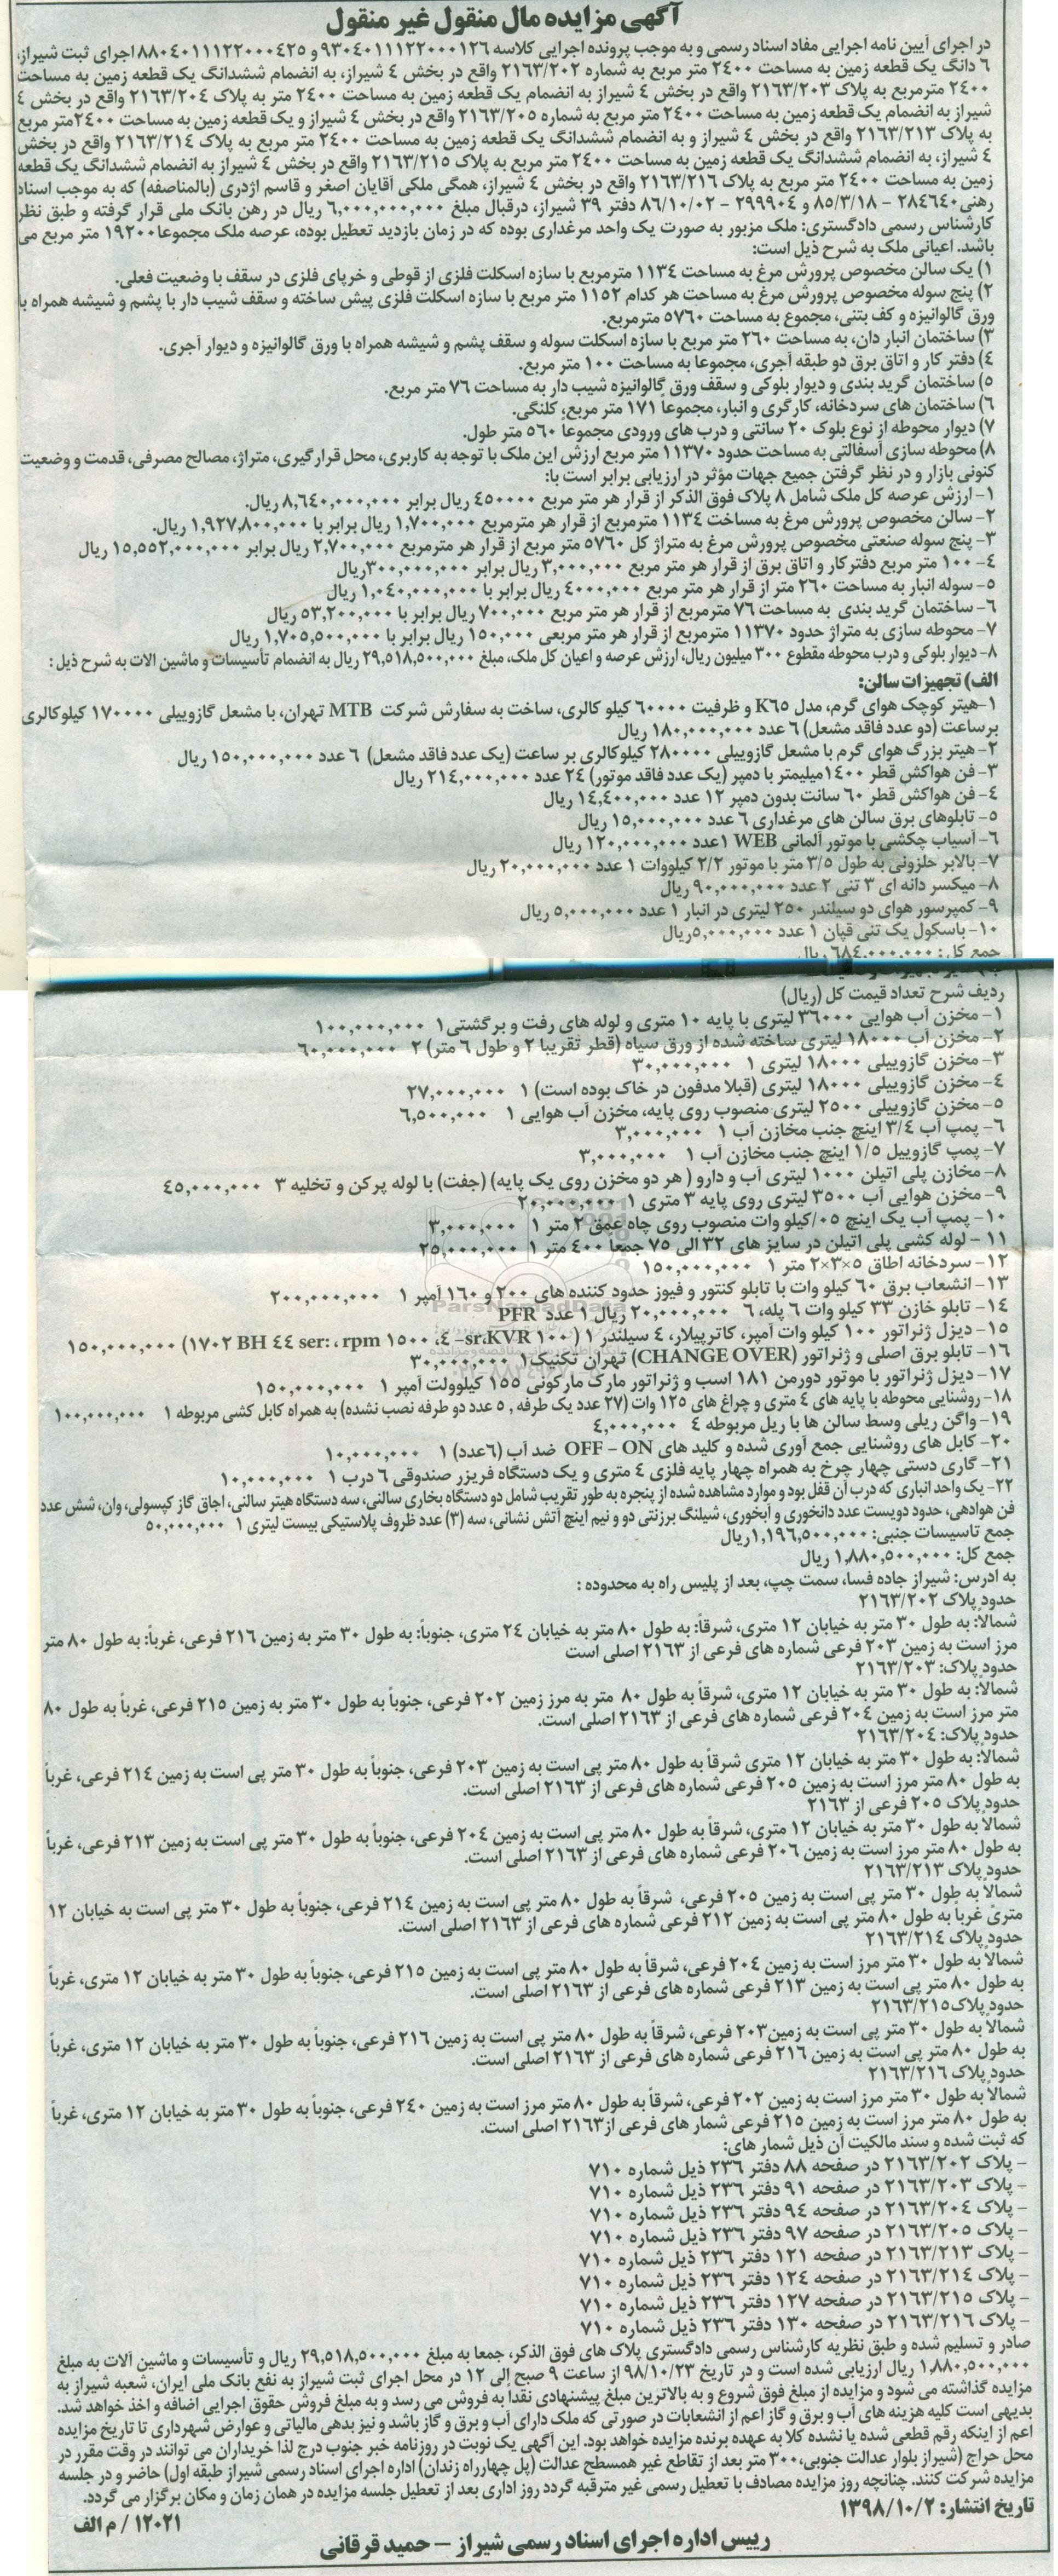 آگهی مزایده مال منقول غیر منقول
در اجرای آیین نامه اجرایی مفاد اسناد رسمی و به موجب پرونده اجرایی کلاسه ۹۳۰۴۰۱۱۱۲۲۰۰۰۱۲۶ و ۸۸۰۴۰۱۱۱۲۲۰۰۰۴۲۵ اجرای ثبت شیراز،
۶ دانگ یک قطعه زمین به مساحت ۲۴۰۰ متر مربع به شماره ۲۱۶۳/۲۰۲ واقع در بخش ۴ شیراز، به انضمام ششدانگ یک قطعه زمین به مساحت
۲۴۰۰ مترمربع به پلاک ۲۱۶۳/۲۰۳ واقع در بخش ۴ شیراز به انضمام یک قطعه زمین به مساحت ۲۴۰۰ متر به پلاک ۲۱۶۳/۲۰۴ واقع در بخش ۴
شیراز به انضمام یک قطعه زمین به مساحت ۲۴۰۰ متر مربع به شماره ۲۱۶۳/۲۰۵ واقع در بخش ۴ شیراز و یک قطعه زمین به مساحت ۲۴۰۰متر مربع
به پلاک ۲۱۶۳/۲۱۳ واقع در بخش ۴ شیراز و به انضمام ششدانگ یک قطعه زمین به مساحت ۲۴۰۰ متر مربع به پلاک ۲۱۶۳/۲۱۴ واقع در بخش
۴ شیراز، به انضمام ششدانگ یک قطعه زمین به مساحت ۲۴۰۰ متر مربع به پلاک ۲۱۶۳/۲۱۵ واقع در بخش ۴ شیراز به انضمام ششدانگ یک قطعه
زمین به مساحت ۲۴۰۰ متر مربع به پلاک ۲۱۶۳/۲۱۶ واقع در بخش ۴ شیراز، همگی ملکی آقایان اصغر و قاسم اژدری (بالمناصفه) که به موجب اسناد
رهنی۲۸۴۶۴۰ - ۸۵/۳/۱۸ و ۲۹۹۹۰۴ - ۸۶/۱۰/۰۲ دفتر ۳۹ شیراز، درقبال مبلغ ۶,۰۰۰,۰۰۰,۰۰۰ ریال در رهن بانک ملی قرار گرفته و طبق نظر
کارشناس رسمی دادگستری: ملک مزبور به صورت یک واحد مرغداری بوده که در زمان بازدید تعطیل بوده، عرصه ملک مجموعا ۱۹۲۰۰ متر مربع می
باشد. اعیانی ملک به شرح ذیل است:
۱) یک سالن مخصوص پرورش مرغ به مساحت ۱۱۳۴ مترمربع با سازه اسکلت فلزی از قوطی و خرپای فلزی در سقف با وضعیت فعلی.
۲) پنج سوله مخصوص پرورش مرغ به مساحت هر کدام ۱۱۵۲ متر مربع با سازه اسکلت فلزی پیش ساخته و سقف شیب دار با پشم و شیشه همراه با
ورق گالوانیزه و کف بتنی، مجموع به مساحت ۵۷۶۰ مترمربع.
۳) ساختمان انبار دان، به مساحت ۲۶۰ متر مربع با سازه اسکلت سوله و سقف پشم و شیشه همراه با ورق گالوانیزه و دیوار آجری.
۴) دفتر کار و اتاق برق دو طبقه آجری، مجموعا به مساحت ۱۰۰ متر مربع.
۵) ساختمان گرید بندی و دیوار بلوکی و سقف ورق گالوانیزه شیب دار به مساحت ۷۶ متر مربع.
۶) ساختمان های سردخانه، کارگری و انبار، مجموعاً ۱۷۱ متر مربع، کلنگی.
۷) دیوار محوطه از نوع بلوک ۲۰ سانتی و درب های ورودی مجموعا ۵۶۰ متر طول.
۸) محوطه سازی آسفالتی به مساحت حدود ۱۱۳۷۰ متر مربع ارزش این ملک با توجه به کاربری، محل قرارگیری، متراژ، مصالح مصرفی، قدمت و وضعیت
کنونی بازار و در نظر گرفتن جمیع جهات مؤثر در ارزیابی برابر است با:
۱- ارزش عرصه کل ملک شامل ۸ پلاک فوق الذکر از قرار هر متر مربع ۴۵۰۰۰۰ ریال برابر ۸,۶۴۰,۰۰۰,۰۰۰ ریال.
۲- سالن مخصوص پرورش مرغ به مساحت ۱۱۳۴ مترمربع از قرار هر مترمربع ۱,۷۰۰,۰۰۰ ریال برابر با ۱,۹۲۷,۸۰۰,۰۰۰ ریال.
۳- پنج سوله صنعتی مخصوص پرورش مرغ به متراژ کل ۵۷۶۰ متر مربع از قرار هر مترمربع ۲,۷۰۰,۰۰۰ ریال برابر ۱۵,۵۵۲,۰۰۰,۰۰۰ ریال
۴- ۱۰۰ متر مربع دفترکار و اتاق برق از قرار هر متر مربع ۳,۰۰۰,۰۰۰ ریال برابر ۳۰۰,۰۰۰,۰۰۰ریال
۵- سوله انبار به مساحت ۲۶۰ متر از قرار هر متر مربع ۴۰۰۰,۰۰۰ ریال برابر با ۱,۰۴۰,۰۰۰,۰۰۰ ریال
۶- ساختمان گرید بندی به مساحت ۷۶ مترمربع از قرار هر متر مربع ۷۰۰,۰۰۰ ریال برابر با ۵۳,۲۰۰,۰۰۰ ریال
۷- محوطه سازی به متراژ حدود ۱۱۳۷۰ مترمربع از قرار هر متر مربعی ۱۵۰,۰۰۰ ریال برابر با ۱,۷۰۵,۵۰۰,۰۰۰ ریال
۸- دیوار بلوکی و درب محوطه مقطوع ۳۰۰ میلیون ریال، ارزش عرصه و اعیان کل ملک، مبلغ ۲۹,۵۱۸,۵۰۰,۰۰۰ ریال به انضمام تأسیسات و ماشین الات به شرح ذیل :
الف) تجهیزات سالن:
۱-هیتر کوچک هوای گرم، مدل K۶۵ و ظرفیت ۶۰۰۰۰ کیلو کالری، ساخت به سفارش شرکت MTB تهران، با مشعل گازوییلی ۱۷۰۰۰۰ کیلوکالری
برساعت (دو عدد فاقد مشعل) ۶ عدد ۱۸۰,۰۰۰,۰۰۰ ریال
۲- هیتر بزرگ هوای گرم با مشعل گازوییلی ۲۸۰۰۰۰ کیلوکالری بر ساعت (یک عدد فاقد مشعل) ۶ عدد ۱۵۰,۰۰۰,۰۰۰ ریال
۳- فن هواکش قطر ۱۴۰۰میلیمتر با دمپر (یک عدد فاقد موتور) ۲۴ عدد ۲۱۴,۰۰۰,۰۰۰ ریال
۴- فن هواکش قطر ۶۰ سانت بدون دمپر ۱۲ عدد ۱۴,۴۰۰,۰۰۰ ریال
۵- تابلوهای برق سالن های مرغداری ۶ عدد ۱۵,۰۰۰,۰۰۰ ریال
۶- آسیاب چکشی با موتور آلمانی WEB ۱عدد ۱۲۰,۰۰۰,۰۰۰ ریال
۷- بالابر حلزونی به طول ۳/۵ متر با موتور ۲/۲ کیلووات ۱ عدد ۲۰,۰۰۰,۰۰۰ ریال
۸- میکسر دانه ای ۳ تنی ۲ عدد ۹۰,۰۰۰,۰۰۰ ریال
۹- کمپرسور هوای دو سیلندر ۲۵۰ لیتری در انبار ۱ عدد ۵,۰۰۰,۰۰۰ ریال
۱۰- باسکول یک تنی قپان ۱ عدد ۵,۰۰۰,۰۰۰ریال
جمع کل: ۶۸۴,۰۰۰,۰۰۰ ریال
ردیف شرح تعداد قیمت کل (ریال)
۱- مخزن آب هوایی ۳۶۰۰۰ لیتری با پایه ۱۰ متری و لوله های رفت و برگشتی۱ ۱۰۰,۰۰۰,۰۰۰
۲- مخزن آب ۱۸۰۰۰ لیتری ساخته شده از ورق سیاه (قطر تقریبا ۲ و طول ۶ متر) ۲ ۶۰,۰۰۰,۰۰۰
۳- مخزن گازوییلی ۱۸۰۰۰ لیتری ۱ ۳۰,۰۰۰,۰۰۰
۴- مخزن گازوییلی ۱۸۰۰۰ لیتری (قبلا مدفون در خاک بوده است) ۱ ۲۷,۰۰۰,۰۰۰
۵- مخزن گازوییلی ۲۵۰۰ لیتری منصوب روی پایه، مخزن آب هوایی ۱ ۶,۵۰۰,۰۰۰
۶- پمپ آب ۳/۴ اینچ جنب مخازن آب ۱ ۳,۰۰۰,۰۰۰
۷- پمپ گازوییل ۱/۵ اینچ جنب مخازن آب ۱ ۳,۰۰۰,۰۰۰
۸- مخازن پلی اتیلن ۱۰۰۰ لیتری آب و دارو ( هر دو مخزن روی یک پایه) (جفت) با لوله پرکن و تخلیه ۳ ۴۵,۰۰۰,۰۰۰
۹- مخزن هوایی آب ۳۵۰۰ لیتری روی پایه ۳ متری ۱ ۲۰,۰۰۰,۰۰۰
۱۰- پمپ آب یک اینچ ۰۵/کیلو وات منصوب روی چاه عمق ۲ متر ۱ ۳,۰۰۰,۰۰۰
۱۱ - لوله کشی پلی اتیلن در سایز های ۳۲ الی ۷۵ جمعا ۴۰۰ متر ۱ ۲۵,۰۰۰,۰۰۰
۱۲- سردخانه اطاق ۵×۳×۲ متر ۱ ۱۵۰,۰۰۰,۰۰۰
۱۳- انشعاب برق ۶۰ کیلو وات با تابلو کنتور و فیوز حدود کننده های ۲۰۰ و ۱۶۰ آمپر ۱ ۲۰۰,۰۰۰,۰۰۰
۱۴- تابلو خازن ۳۳ کیلو وات ۶ پله، ۶ ۲۰,۰۰۰,۰۰۰ ریال ۱ عدد PFR
۱۵- دیزل ژنراتور ۱۰۰ کیلو وات آمپر، کاترپیلار، ۴ سیلندر ۱ (۱۰۰ sr.KVR- ۴، ۱۵۰۰ rpm ، ser: ۴۴ BH ۱۷۰۲) ۱۵۰,۰۰۰,۰۰۰
۱۶- تابلو برق اصلی و ژنراتور (CHANGE OVER) تهران تکنیک۱ ۳۰,۰۰۰,۰۰۰
۱۷- دیزل ژنراتور با موتور دورمن ۱۸۱ اسب و ژنراتور مارک مارکونی ۱۵۵ کیلوولت آمپر ۱ ۱۵۰,۰۰۰,۰۰۰
۱۸- روشنایی محوطه با پایه های ۴ متری و چراغ های ۱۲۵ وات (۲۷ عدد یک طرفه , ۵ عدد دو طرفه نصب نشده) به همراه کابل کشی مربوطه ۱ ۱۰۰,۰۰۰,۰۰۰
۱۹- واگن ریلی وسط سالن ها با ریل مربوطه ۴ ۴,۰۰۰,۰۰۰
۲۰- کابل های روشنایی جمع آوری شده و کلید های OFF – ON ضد آب (۶عدد) ۱ ۱۰,۰۰۰,۰۰۰
۲۱- گاری دستی چهار چرخ به همراه چهار پایه فلزی ۴ متری و یک دستگاه فریزر صندوقی ۶ درب ۱ ۱۰,۰۰۰,۰۰۰
۲۲- یک واحد انباری که درب آن قفل بود و موارد مشاهده شده از پنجره به طور تقریب شامل دو دستگاه بخاری سالنی، سه دستگاه هیتر سالنی، اجاق گاز کپسولی، وان، شش عدد
فن هوادهی، حدود دویست عدد دانخوری و آبخوری، شیلنگ برزنتی دو و نیم اینچ آتش نشانی، سه (۳) عدد ظروف پلاستیکی بیست لیتری ۱ ۵۰,۰۰۰,۰۰۰
جمع تاسیسات جنبی: ۱,۱۹۶,۵۰۰,۰۰۰ریال
جمع کل: ۱,۸۸۰,۵۰۰,۰۰۰ ریال
به ادرس: شیراز جاده فسا، سمت چپ، بعد از پلیس راه به محدوده :
حدود پلاک ۲۱۶۳/۲۰۲
شمالاً: به طول ۳۰ متر به خیابان ۱۲ متری، شرقاً: به طول ۸۰ متر به خیابان ۲۴ متری، جنوباً: به طول ۳۰ متر به زمین ۲۱۶ فرعی، غرباً: به طول ۸۰ متر
مرز است به زمین ۲۰۳ فرعی شماره های فرعی از ۲۱۶۳ اصلی است
حدود پلاک: ۲۱۶۳/۲۰۳
شمالاً: به طول ۳۰ متر به خیابان ۱۲ متری، شرقاً به طول ۸۰ متر به مرز زمین ۲۰۲ فرعی، جنوباً به طول ۳۰ متر به زمین ۲۱۵ فرعی، غرباً به طول ۸۰
متر مرز است به زمین ۲۰۴ فرعی شماره های فرعی از ۲۱۶۳ اصلی است.
حدود پلاک: ۲۱۶۳/۲۰۴
شمالاً: به طول ۳۰ متر به خیابان ۱۲ متری شرقاً به طول ۸۰ متر پی است به زمین ۲۰۳ فرعی، جنوباً به طول ۳۰ متر پی است به زمین ۲۱۴ فرعی، غرباً
به طول ۸۰ متر مرز است به زمین ۲۰۵ فرعی شماره های فرعی از ۲۱۶۳ اصلی است.
حدود پلاک ۲۰۵ فرعی از ۲۱۶۳
شمالاً به طول ۳۰ متر به خیابان ۱۲ متری، شرقاً به طول ۸۰ متر پی است به زمین ۲۰۴ فرعی، جنوباً به طول ۳۰ متر پی است به زمین ۲۱۳ فرعی، غرباً
به طول ۸۰ متر مرز است به زمین ۲۰۶ فرعی شماره های فرعی از ۲۱۶۳ اصلی است.
حدود پلاک ۲۱۶۳/۲۱۳
شمالاً به طول ۳۰ متر پی است به زمین ۲۰۵ فرعی، شرقاً به طول ۸۰ متر پی است به زمین ۲۱۴ فرعی، جنوباً به طول ۳۰ متر پی است به خیابان ۱۲
متری غرباً به طول ۸۰ متر پی است به زمین ۲۱۲ فرعی شماره های فرعی از ۲۱۶۳ اصلی است.
حدود پلاک ۲۱۶۳/۲۱۴
شمالاً به طول ۳۰ متر مرز است به زمین ۲۰۴ فرعی، شرقاً به طول ۸۰ متر پی است به زمین ۲۱۵ فرعی، جنوباً به طول ۳۰ متر به خیابان ۱۲ متری، غرباً
به طول ۸۰ متر پی است به زمین ۲۱۳ فرعی شماره های فرعی از ۲۱۶۳ اصلی است.
حدود پلاک۲۱۶۳/۲۱۵
شمالاً به طول ۳۰ متر پی است به زمین۲۰۳ فرعی، شرقاً به طول ۸۰ متر پی است به زمین ۲۱۶ فرعی، جنوباً به طول ۳۰ متر به خیابان ۱۲ متری، غرباً
به طول ۸۰ متر پی است به زمین ۲۱۶ فرعی شماره های فرعی از ۲۱۶۳ اصلی است.
حدود پلاک ۲۱۶۳/۲۱۶
شمالاً به طول ۳۰ متر مرز است به زمین ۲۰۲ فرعی، شرقاً به طول ۸۰ متر مرز است به زمین ۲۴۰ فرعی، جنوباً به طول ۳۰ متر به خیابان ۱۲ متری، غرباً
به طول ۸۰ متر مرز است به زمین ۲۱۵ فرعی شمار های فرعی از۲۱۶۳ اصلی است.
که ثبت شده و سند مالکیت آن ذیل شمار های:
- پلاک ۲۱۶۳/۲۰۲ در صفحه ۸۸ دفتر ۲۳۶ ذیل شماره ۷۱۰
- پلاک ۲۱۶۳/۲۰۳ در صفحه ۹۱ دفتر ۲۳۶ ذیل شماره ۷۱۰
- پلاک ۲۱۶۳/۲۰۴ در صفحه ۹۴ دفتر ۲۳۶ ذیل شماره ۷۱۰
- پلاک ۲۱۶۳/۲۰۵ در صفحه ۹۷ دفتر ۲۳۶ ذیل شماره ۷۱۰
- پلاک ۲۱۶۳/۲۱۳ در صفحه ۱۲۱ دفتر ۲۳۶ ذیل شماره ۷۱۰
- پلاک ۲۱۶۳/۲۱۴ در صفحه ۱۲۴ دفتر ۲۳۶ ذیل شماره ۷۱۰
- پلاک ۲۱۶۳/۲۱۵ در صفحه ۱۲۷ دفتر ۲۳۶ ذیل شماره ۷۱۰
- پلاک ۲۱۶۳/۲۱۶ در صفحه ۱۳۰ دفتر ۲۳۶ ذیل شماره ۷۱۰
صادر و تسلیم شده و طبق نظریه کارشناس رسمی دادگستری پلاک های فوق الذکر، جمعا به مبلغ ۲۹,۵۱۸,۵۰۰,۰۰۰ ریال و تأسیسات و ماشین آلات به مبلغ
۱,۸۸۰,۵۰۰,۰۰۰ ریال ارزیابی شده است و در تاریخ ۹۸/۱۰/۲۳ از ساعت ۹ صبح إلی ۱۲ در محل اجرای ثبت شیراز به نفع بانک ملی ایران، شعبه شیراز به
مزایده گذاشته می شود و مزایده از مبلغ فوق شروع و به بالاترین مبلغ پیشنهادی نقداً به فروش می رسد و به مبلغ فروش حقوق اجرایی اضافه و اخذ خواهد شد.
بدیهی است کلیه هزینه های آب و برق و گاز اعم از انشعابات در صورتی که ملک دارای آب و برق و گاز باشد و نیز بدهی مالیاتی و عوارض شهرداری تا تاریخ مزایده
اعم از اینکه رقم قطعی شده یا نشده کلا به عهده برنده مزایده خواهد بود. این آگهی یک نوبت در روزنامه خبر جنوب درج لذا خریداران می توانند در وقت مقرر در
محل حراج (شیراز بلوار عدالت جنوبی، ۳۰۰ متر بعد از تقاطع غیر همسطح عدالت (پل چهارراه زندان) اداره اجرای اسناد رسمی شیراز طبقه اول) حاضر و در جلسه
مزایده شرکت کنند. چنانچه روز مزایده مصادف با تعطیل رسمی غیر مترقبه گردد روز اداری بعد از تعطیل جلسه مزایده در همان زمان و مکان برگزار می گردد.
تاریخ انتشار: ۱۳۹۸/۱۰/۲
۱۲۰۲۱ / م الف
رییس اداره اجرای اسناد رسمی شیراز – حمید قرقانی